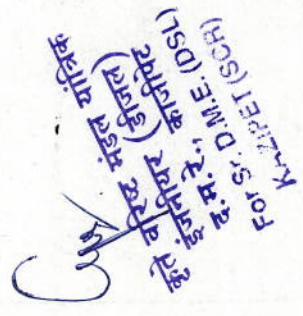 कृते वरिष्ठ मंडल यांत्रिक
इंजीनियर (डीजल)
द.म.रे., काजीपेट
For Sr. D.M.E. (DSL)
KAZIPET (SCR)